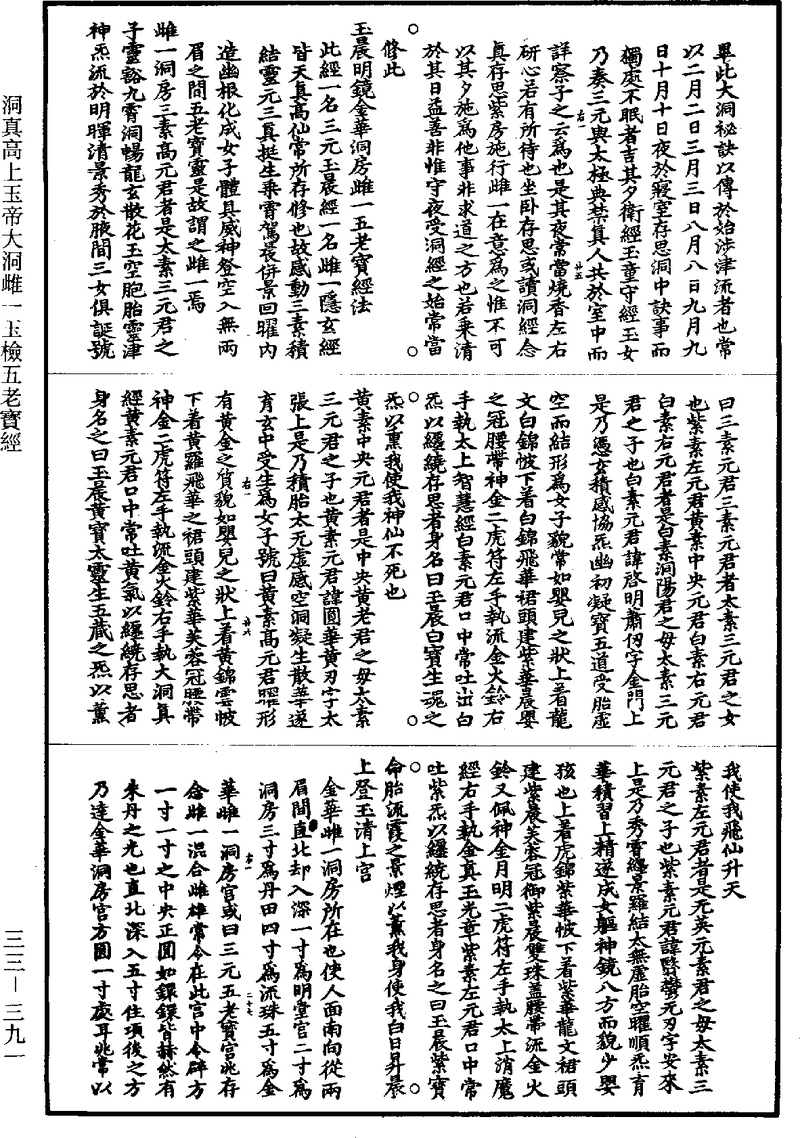 畢此大洞祕訣以傳於始涉津流者也常
以二月二日三月三日八月八日九月九
日十月十日夜於寢室存思洞中訣事而
獨處不眠者吉其夕衛經玉童守經玉女
乃奏三元與太極典禁真人共於室中而
詳察子之云爲也是其夜常當燒香左右
研心若有所待也坐卧存思或讀洞經念
真存思紫房施行雌一在意爲之惟不可
以其夕施爲他事非求道之方也若乘清
於其日益善非惟守夜受洞經之始常當
修此
玉晨明鏡金華洞房雌一五老寶經法
此經一名三元玉晨經一名雌一隱玄經
皆天真高仙常所存修也故感動三素積
結靈元三真挺生乘霄駕景併景回曜內
造幽根化成女子體具威神登空入無兩
眉之間五老寶靈是故謂之雌一焉
雌一洞房三素高元君者是太素三元君之
子靈豁九霄洞暢龍玄散花玉空胞胎靈津
神炁流於明暉清景秀於腋間三女俱誕號
曰三素元君三素元君者太素三元君之女
也紫素左元君黃素中央元君白素右元君
白素右元君者是白素洞陽君之母太素三元
君之子也白素元君諱啓明蕭刃字金門上
是乃憑玄積感協炁幽初凝寶五道受胎虛
空而結形爲女子貌常如嬰兒之狀上着龍
文白錦帔下着白錦飛華裙頭建紫華晨嬰
之冠腰帶神金二虎符左手執流金火鈴右
手執太上智慧經白素元君口中常吐出白
炁以纏繞存思者身名曰玉晨白寶生魂之
炁以熏我使我神仙不死也
黃素中央元君者是中央黃老君之母太素
三元君之子也黃素元君諱圓華黃刃字太
張上是乃積胎太无虛感空洞凝生散華遂
育玄中受生爲女子號曰黃素高元君曜形
有黃金之質貌如嬰兒之狀上着黃錦雲帔
下着黃羅飛華之裙頭建紫華芙蓉冠腰帶
神金二虎符左手執流金火鈴右手執大洞真
經黃素元君口中常吐黃氣以纏繞存思者
身名之曰玉晨黃寶太靈生五藏之炁以薰
我使我飛仙升天
紫素左元君者是元英元素君之母太素三
元君之子也紫素元君諱翳鬱元刃字安來
上是乃秀霄纏景羅結太無虛胎空曜順炁育
華積習上精遂成女軀神鏡八方而貌少嬰
孩也上着虎錦紫華帔下着紫華龍文裙頭
建紫晨芙蓉冠御紫晨雙珠蓋腰帶流金火
鈴又佩神金月明二虎符左手執太上消魔
經右手執金真玉光章紫素左元君口中常
吐紫炁以纏繞存思者身名之曰玉晨紫寶
命胎流霞之景煙以薰我身使我白日昇晨
上登玉清上宮
金華雌一洞房所在也使人面南向從兩
眉間直北却入深一寸爲明堂宮二寸爲
洞房三寸爲丹田四寸爲流珠五寸爲金
華雌一洞房宮或曰三元五老寶宮兆存
念雌一混合雌雄常令在此宮中令辟方
一寸一寸之中央正圓如鏡鏡皆赫然有
朱丹之光也直北深入五寸住項後之方
乃達金華洞房宮方圓一寸處耳兆常以
洞真高上玉帝大洞雌一玉檢五老寶經
三三—三九一